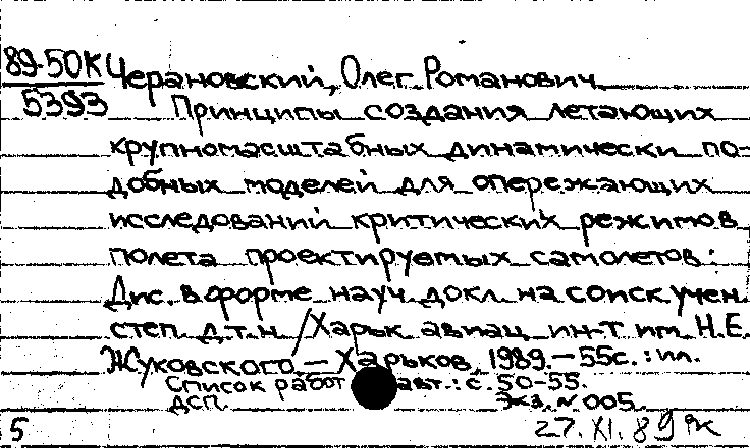 89-50К Черановский, Олег Романович
5393 Принципы создания летающих
крупномасштабных динамически по-
добных моделей для опережающих
исследований критических режимов
полета проектируемых самолетов:
Дис. в форме науч. докл. на соиск. учен.
степ. д.т.н. / Харьк. авиац. ин-т им. Н.Е.
Жуковского. — Харьков, 1989. — 55с.: ил.
Список работ авт.: с. 50-55.
ДСП. Экз. № 005.
5 27.XI.89